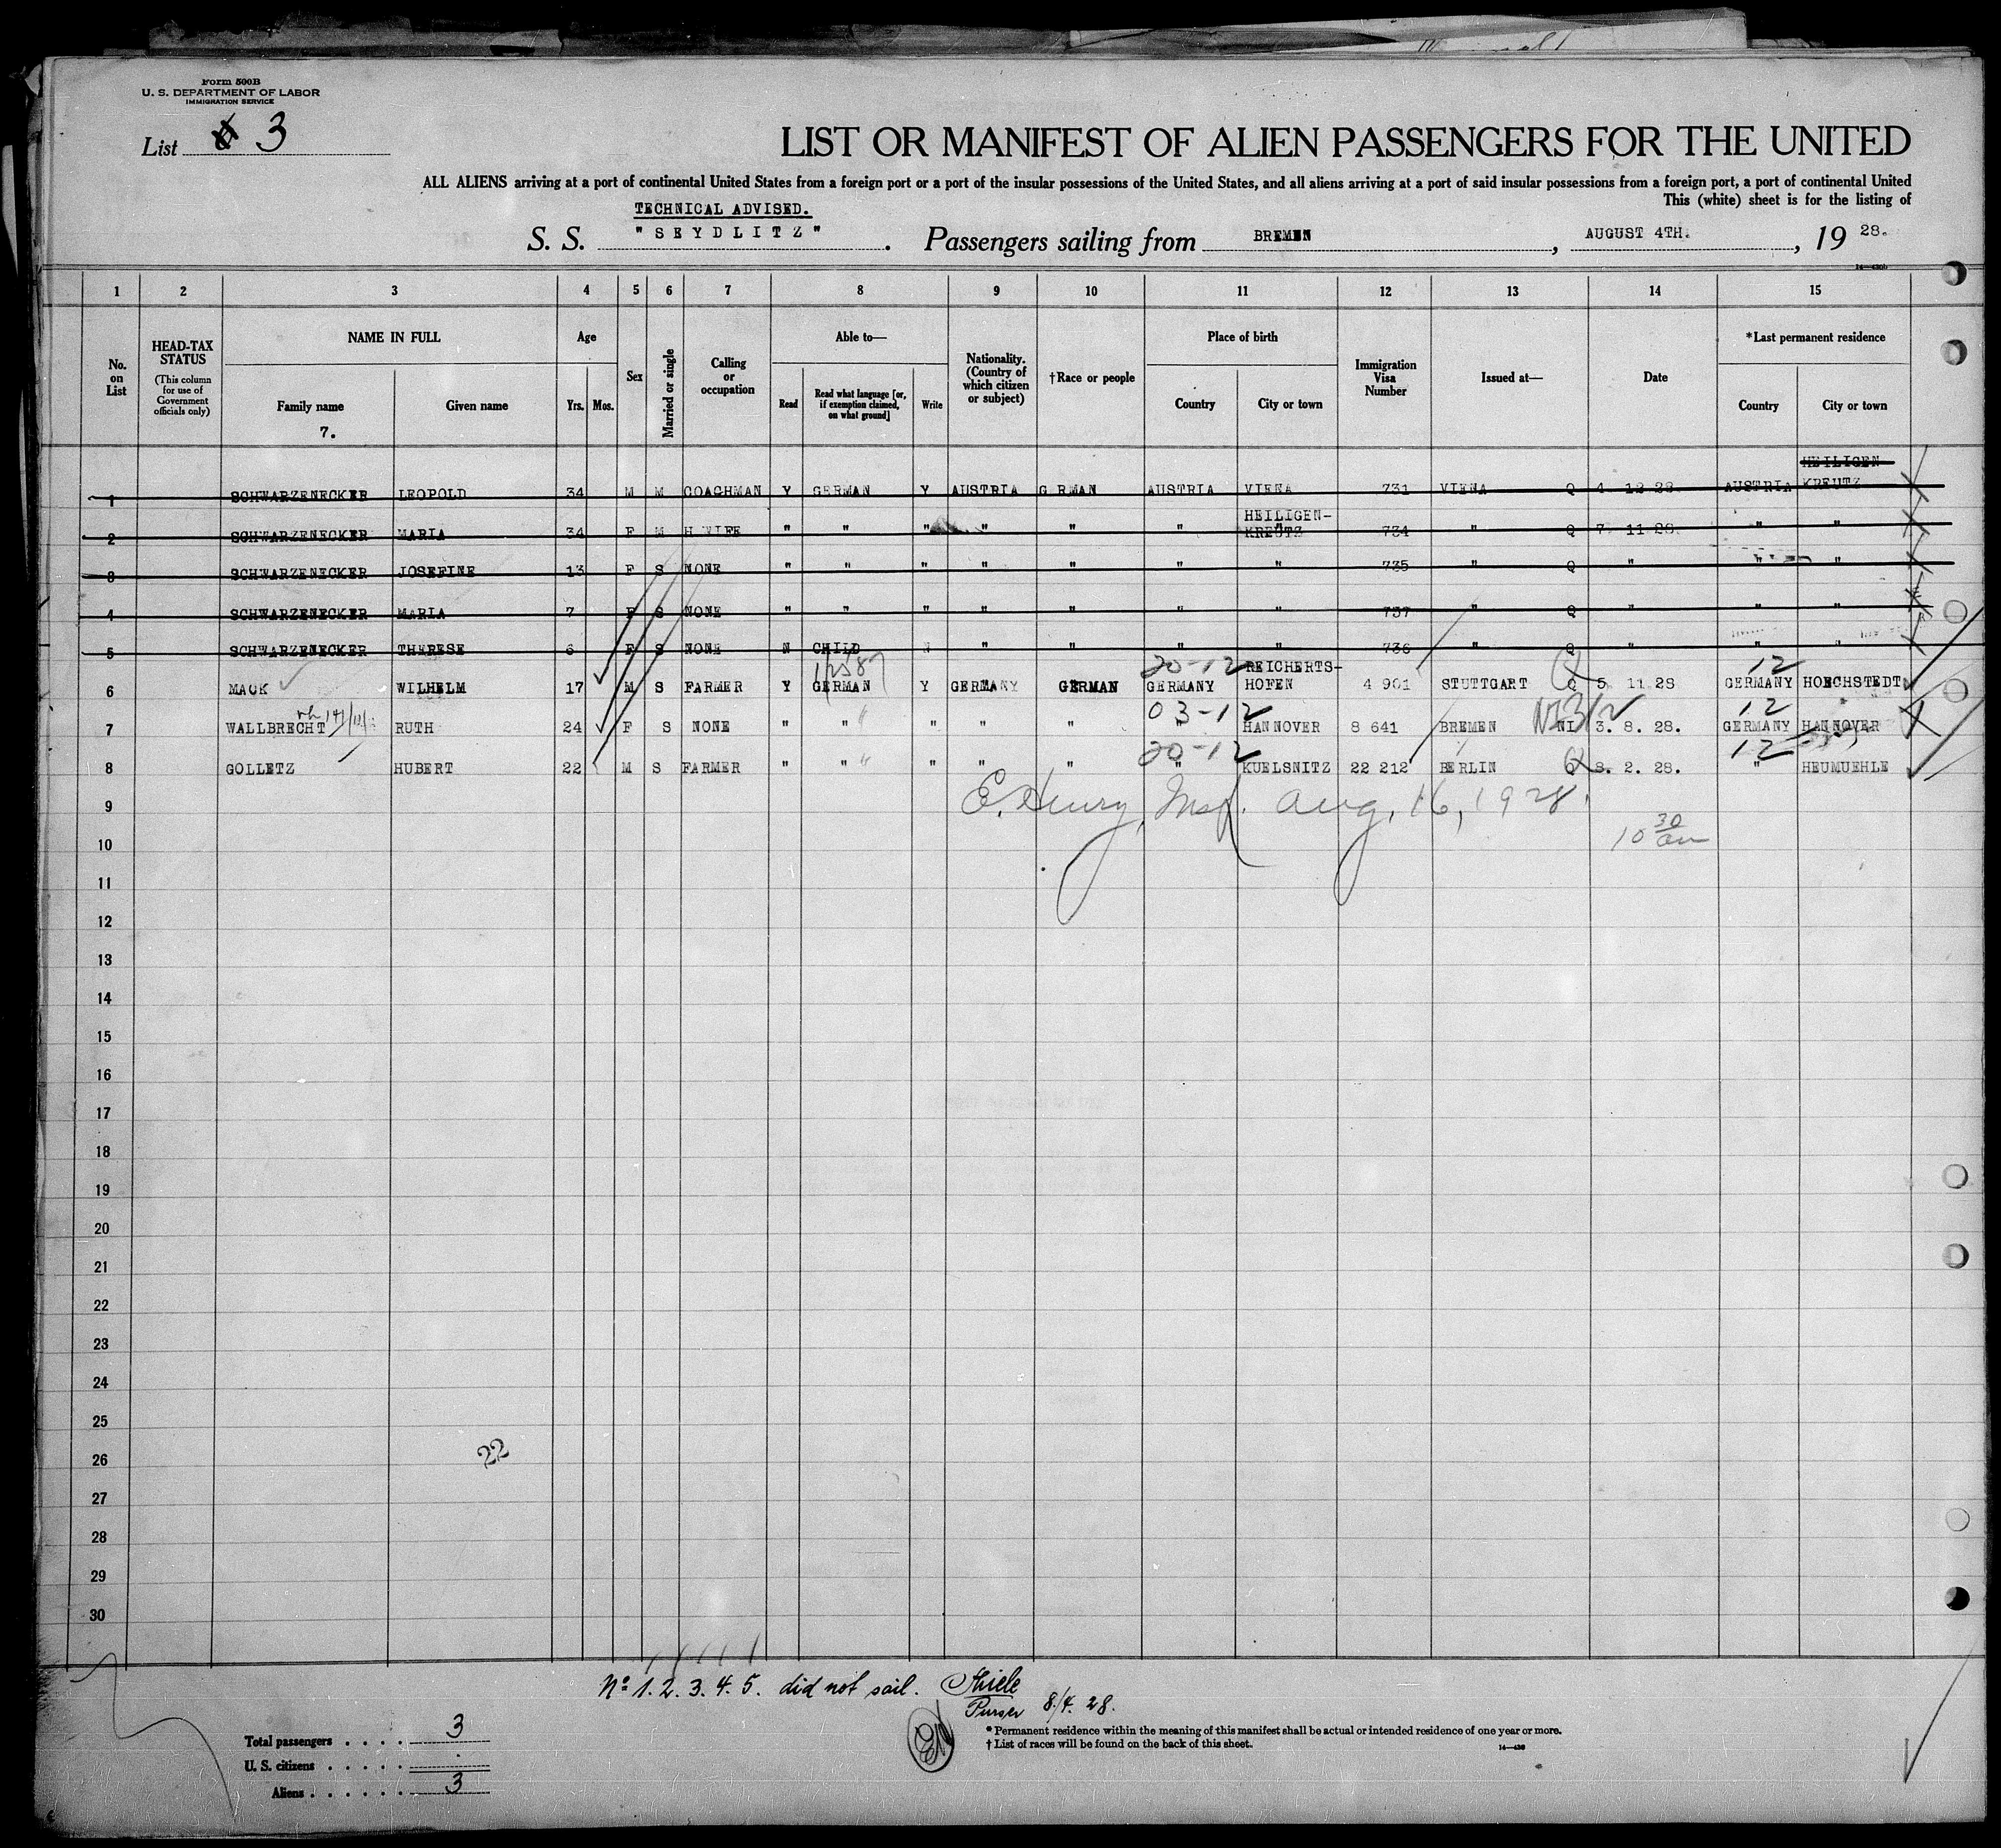 Form 500B
U. S. DEPARTMENT OF LABOR
IMMIGRATION SERVICE
List 3
LIST OR MANIFEST OF ALIEN PASSENGERS FOR THE UNITED
ALL ALIENS arriving at a port of continental United States from a foreign port or a port of the insular possessions of the United States, and all aliens arriving at a port of said insular possessions from a foreign port, a port of continental United
This (white) sheet is for the listing of
TECHNICAL ADVISED.
S. S. "SEYDLITZ". Passengers sailing from BREMEN, AUGUST 4TH., 19 28.
1 2 3 4 5 6 7 8 9 10 11 12 13 14 15
No. on List
HEAD-TAX STATUS
(This column for use of Government officials only)
NAME IN FULL
Family name
7.
Given name
Age
Yrs. Mos.
Sex
Married or single
Calling or occupation
Able to—
Read
Read what language [or, if exemption claimed, on what ground]
Write
Nationality. (Country of which citizen or subject)
†Race or people
Place of birth
Country
City or town
Immigration Visa Number
Issued at—
Date
*Last permanent residence
Country
City or town
HEILIGEN-
1 SCHWARZENECKER LEOPOLD 34 M M COACHMAN Y GERMAN Y AUSTRIA G RMAN AUSTRIA VIENA 731 VIENA Q 4 12 28 AUSTRIA KREUTZ
HEILIGEN-
2 SCHWARZENECKER MARIA 34 F M H WIFE " " " " " " KREUTZ 734 " Q 7 11 28 " "
3 SCHWARZENECKER JOSEFINE 13 F S NONE " " " " " " " 735 " Q " " "
4 SCHWARZENECKER MARIA 7 F S NONE " " " " " " " 737 " Q " " "
5 SCHWARZENECKER THERESE 6 F S NONE N CHILD N " " " " 736 " Q " " "
20-12 REICHERTS- 12
6 MACK WILHELM 17 M S FARMER Y GERMAN Y GERMANY GERMAN GERMANY HOFEN 4 901 STUTTGART Q 5 11 28 GERMANY HOECHSTEDT
03-12 12
7 WALLBRECHT RUTH 24 F S NONE " " " " " " HANNOVER 8 641 BREMEN NI 3. 8. 28. GERMANY HANNOVER
20-12 12
8 GOLLETZ HUBERT 22 M S FARMER " " " " " " KUELSNITZ 22 212 BERLIN Q 8. 2. 28. " HEUMUEHLE
9
E. Henry, Insp. Aug. 16, 1928.
10 10 30 am
11
12
13
14
15
16
17
18
19
20
21
22
23
24
25
26
22
27
28
29
30
No 1. 2. 3. 4. 5. did not sail. Thiele
Purser 8/4. 28.
Total passengers . . . . 3
U. S. citizens . . . . .
Aliens . . . . . . 3
* Permanent residence within the meaning of this manifest shall be actual or intended residence of one year or more.
† List of races will be found on the back of this sheet.
14—430